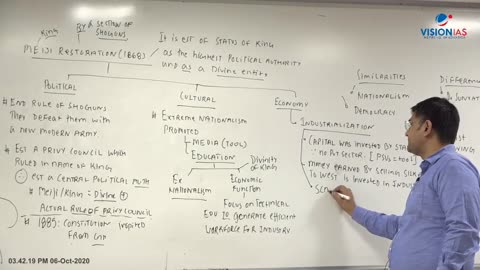 VISIONIAS
KING
BY A SECTION OF
SHOGUNS
MEIJI RESTORATION (1868)
It is est of status of King
as the highest Political Authority
and as a Divine entity
POLITICAL
# END RULE OF SHOGUNS
They defeat them with
a new modern army
# EST A PRIVY COUNCIL which
Ruled in name of King
EST A CENTRAL POLITICAL AUTH
# Meiji/King = Divine
ACTUAL RULE OF PRIVY COUNCIL
# 1889: CONSTITUTION Inspired
From
CULTURAL
# EXTREME NATIONALISM
PROMOTED
- MEDIA (TOOL)
EDUCATION
Divinity
of Kings
Ex
NATIONALISM
ECONOMIC
FUNCTION
- FOCUS ON TECHNICAL
EDU to generate efficient
workforce for Industry
ECONOMY
INDUSTRIALIZATION
CAPITAL WAS INVESTED BY STA
∵ no Pvt SECTOR.
MONEY EARNED BY SELLING SILK
TO WEST is invested in INDUS
SIMILARITIES
NATIONALISM
DEMOCRACY
DIFFEREN
03.42.19 PM 06-Oct-2020